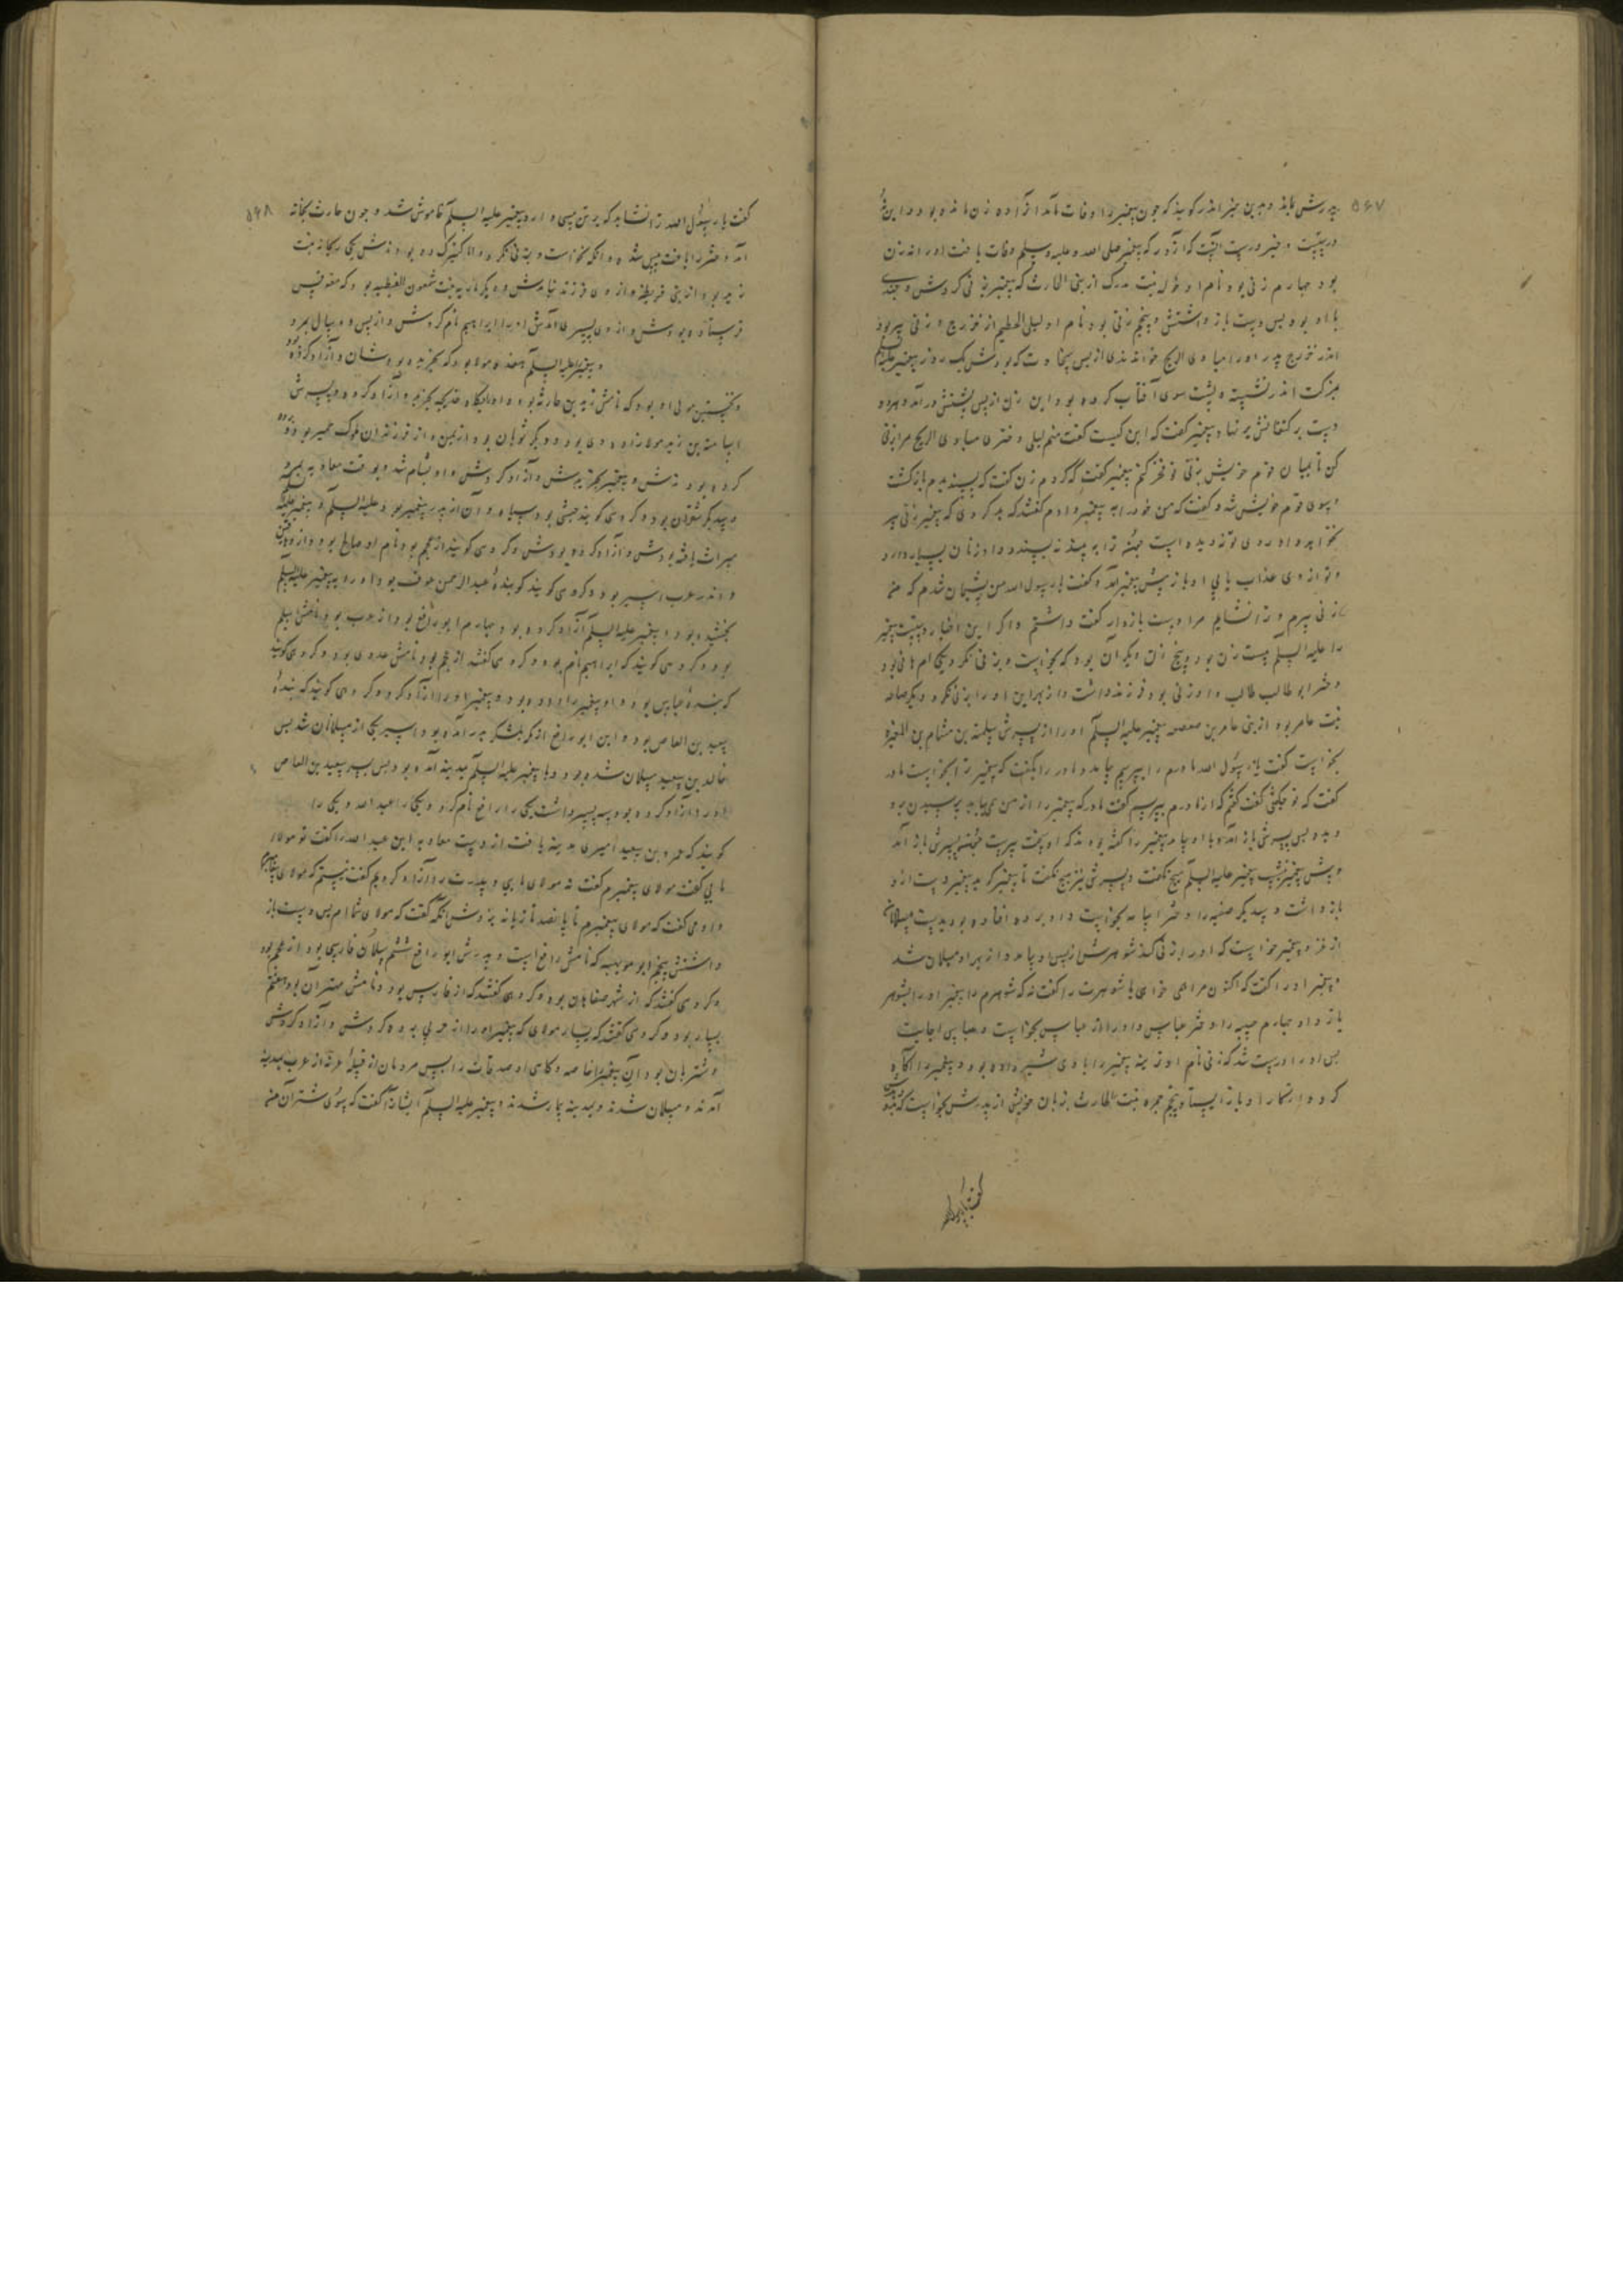 ۵۶۷
پدرش باند و بدین خبر اندر گویند که چون پیغمبر را وفات آمد از آزاده زن مانده بود و این
درستست و خبر درست آنست که آنروز که پیغمبر صلی الله علیه وسلم وفات یافت او را نه زن
بود چهارم زنی بود نام او خوله بنت از بنی الحارث که پیغمبر بزنی کردش و چندی
با او بود پس دست بازداشتش و پنجم زنی بود نام او لیلی الخطیم از خزرج و زنی پیر بود
اندر خزرج پدر او را مباری الریح خواندندی از بس سخاوت که بودش یک روز پیغمبر علیه السلم
اندر نشسته و پشت سوی آفتاب کرده بود این زن از پس پشتش درآمد و هر دو
دست بر کتفانش بر نهاد پیغمبر گفت که این کیست گفت منم لیلی دختر مباری الریح مرا بزنی
کن تا بمیان قوم خویش بزنی تو فخر کنم پیغمبر گفت که کردم زن گفت که پسندیدم بازگشت
و سوی قوم خویش شد و گفت که من خود را به پیغمبر دادم گفتند که بد کردی که پیغمبر زنی پیر
نخواهد او روی تو ندیده است ترا بیند نپسندد و او زنان بسیار دارد
و تو از وی عذاب یابی او باز پیش پیغمبر آمد و گفت یا رسول الله من پشیمان شدم که من
زنی پیرم و ترا نشایم مرا دست بازدار گفت داشتم و اگر این اخبار درستست پیغمبر
را علیه السلم بیست زن بود و پنج زن دیگر آن بود که بخواست و بزنی نکرد یکی ام هانی بود
دختر ابو طالب و او زنی بود فرزند داشت و از بهر این او را بزنی نکرد و دیگر ضباعه
بنت عامر بود از بنی عامر بن صعصعه پیغمبر علیه السلم او را از پسرش سلمة بن هشام بن المغیره
بخواست گفت یا رسول الله مادرم را بپرسیم بیامد و مادر را بگفت که پیغمبر ترا بخواست مادر
گفت که تو چگفتی گفت گفتم که از مادرم بپرسم گفت مادر که پیغمبر را از من می‌باید پرسیدن برو
و بده پس پسرش باز آمد و پیغمبر را گفته بودند که او سخت پیرست پسرش باز آمد
و پیش پیغمبر نشست پیغمبر علیه السلم هیچ نگفت و پسرش نیز هیچ نگفت تا پیغمبر دست ازو
بازداشت و سدیگر صفیه را دختر بشامه بخواست و او برده افتاده بود بدست مسلمانان
از غزو پیغمبر خواست که او را بزنی کند شوهرش از پس او بیامد و از بهر او مسلمان شد
پیغمبر او را گفت که اکنون مرا خواهی یا شوهرت را گفت نه که شوهرم را پیغمبر او را بشوهر
باز داد چهارم حبیبه را دختر عباس و او را از عباس بخواست و عباس اجابت
پس او را درست شد که زنی نام او ثویبه پیغمبر را با وی شیر داده بود و پیغمبر را آگاه
کرد و باز ایستاد پنجم جمره بنت الحارث بزبان خویش از پدرش بخواست که
گفت یا رسول
۵۶۸
گفت یا رسول الله ترا نشاید که بر تن پیسی دارد پیغمبر علیه السلم خاموش شد و چون حارث بخانه
آمد دختر را یافت پیس شده و آنکه بخواست و بزنی نکرد و اما کنیزک دو بود نامش یکی ریحانه بنت
زید بود از بنی قریظه و از وی فرزند نیامدش و دیگر ماریه بنت شمعون القبطیه بود که مقوقس
فرستاده بودش و از وی پسری آمدش او را ابراهیم نام کردش و از پس دو سال بمرد
و پیغمبر علیه السلم هفده مولا بود که بخریده بودشان و آزاد کرده بود
و نخستین مولی او بود که نامش زید بن حارثه بود و او کودکی خدیجه بخرید و آزاد کرد و پسرش
اسامة بن زید مولازاده وی بود و دیگر ثوبان بود از یمن و از فرزندان ملوک حمیر بود برده
کرده بودندش و پیغمبر بخریدش و آزاد کردش و او بشام شد و بوقت معاویه بمرد
و سدیگر شقران بود و گروهی گویند حبشی بود سیاه و آن از پدر پیغمبر بود علیه السلم و پیغمبر علیه السلم
میراث یافته بودش و آزاد کرده بودش و گروهی گویند از عجم بود نام او صالح بود و از دهقانان
و اندر عرب اسیر بود و گروهی گویند که بندهٔ عبدالرحمن عوف بود او را به پیغمبر علیه السلم
بخشیده بود و پیغمبر علیه السلم آزاد کرده بود و چهارم ابو رافع بود از عرب بود نامش اسلم
بود و گروهی گویند که ابراهیم نام بود و گروهی گفتند از عجم بود نامش عدوی بود و گروهی گویند
که بندهٔ عباس بود و او پیغمبر را داده بود و پیغمبر او را آزاد کرد و گروهی گویند که بندهٔ
سعید بن العاص بود و این ابو رافع از مکه بلشکر بدر آمده بود اسیر یکی از مسلمانان شد پس
خالد بن سعید مسلمان شده بود و با پیغمبر علیه السلم بمدینه آمده بود پس پسر سعید بن العاص
او را آزاد کرده بود و سه پسر داشت یکی را رافع نام کرد و یکی را عبدالله و یکی را
گویند که عمرو بن سعید امیری مدینه یافت از دست معاویه این عبدالله را گفت تو مولای
مایی گفت مولای پیغمبرم گفت نه مولای مایی و پدرت را آزاد کردیم گفت نیستم که مولای پیغمبرم
و او می‌گفت که مولای پیغمبرم تا پانصد تازیانه بزدش آنگه گفت که مولای شماام پس دست باز
داشتش پنجم ابو مویهبه که نامش رافع است و پدرش ابو رافع ششم سلمان فارسی بود از عجم بود
و گروهی گفتند که از شهر صفاهان بود و گروهی گفتند که از فارس بود و نامش مهران بود هفتم
یسار بود و گروهی گفتند که یسار مولای که پیغمبر او را برده کردش و آزاد کردش
و شتربان بود آن پیغمبر خاصه و گاهی او صدقات را پس مردمان از قبیلهٔ عرینه از عرب بمدینه
آمدند و مسلمان شدند و بمدینه بیمار شدند و پیغمبر علیه السلم ایشانرا گفت که بسوی شتران من